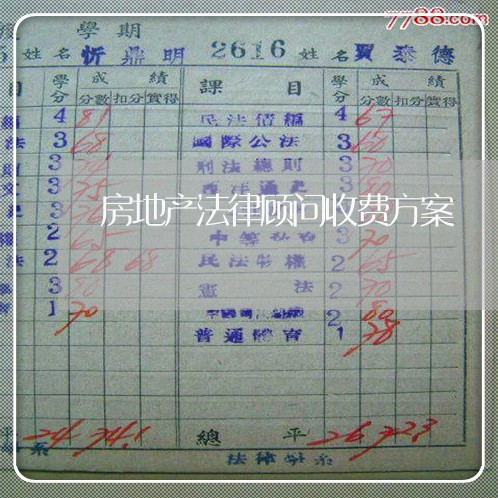 7788.com
度 學期
5 姓名 忻鼎明 2616 姓名 賈泰德
目 學分 成績 課目 學分 成績
分數 扣分 實得 分數 扣分 實得
編 4 81 民法債編 4 67
法 3 68 國際公法 3 60
則 3 刑法總則 3 70
文 3 75 3
史 3 3
房地产法律顾问收费方案
權 2 65 3 70
法 2 68 68 民法物權 2 65
3 80 憲法 2 70
育 1 70 2 80
普通體育 1 78
平 24 74.1 總平 26 72.3
系 法律學系